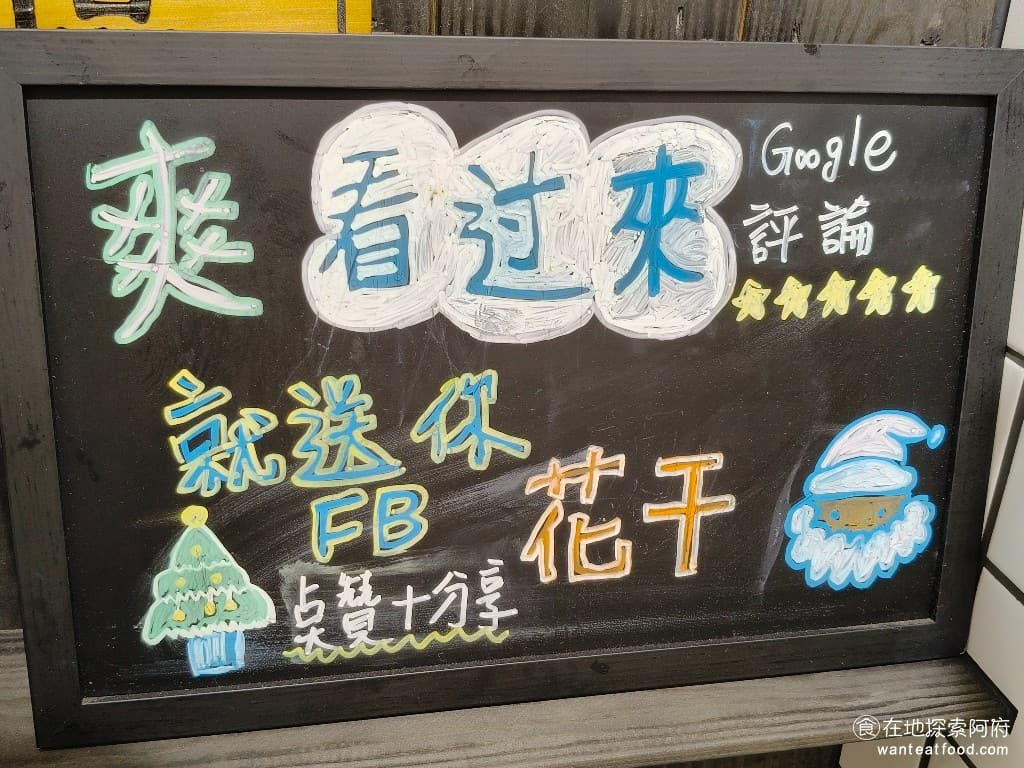 爽看过來
Google
評論
就送你
花干
FB
点贊十分享
食在地探索阿府
wanteatfood.com